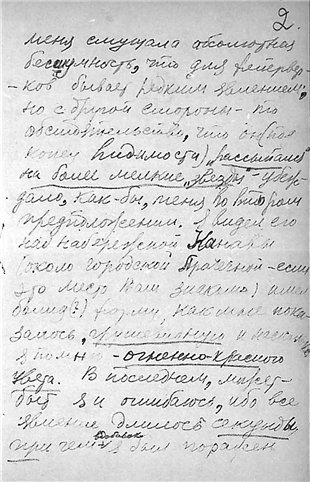 2.
меня смущала абсолютная
бесшумность, что для фейервер-
ков бывает редким явлением;
но с другой стороны - то
обстоятельство, что он (под
конец видимости) „рассыпался"
на более мелкие „звезды" - убеж-
дало, как-бы, меня во втором
предположении. Я видел его
над набережной Канавы
(около городской Прачечной - если
это место Вам знакомо) имел
болид(?) форму, как мне пока-
залось, и насколько
я помню - огненно-красного
цвета. В последнем, может-
быть я и ошибаюсь, ибо все
явление длилось секунды
при чем вдобавок я был поражен